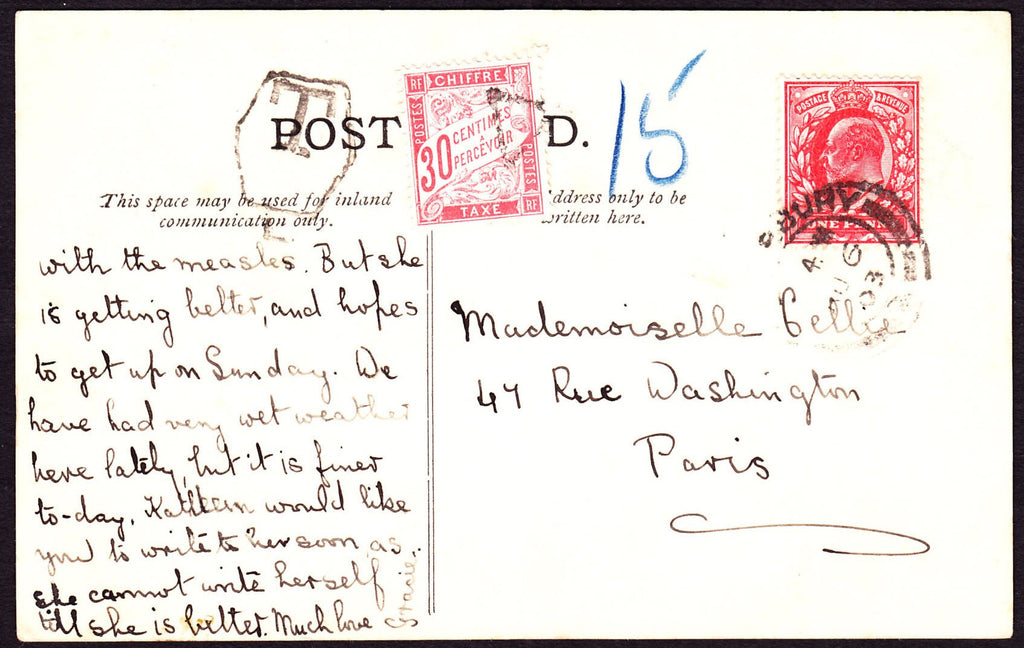 T
POST D.
RF CHIFFRE
POSTES
30 CENTIMES
À PERCEVOIR
POSTES
TAXE RF
15
POSTAGE & REVENUE
ONE PENNY
BURY
AU 6
03
This space may be used for inland
communication only.
ddress only to be
written here.
with the measles. But she
is getting better, and hopes
to get up on Sunday. We
have had very wet weather
here lately, but it is finer
to-day. Kathleen would like
you to write to her soon, as
she cannot write herself
till she is better. Much love
Mademoiselle
47 Rue Washington
Paris